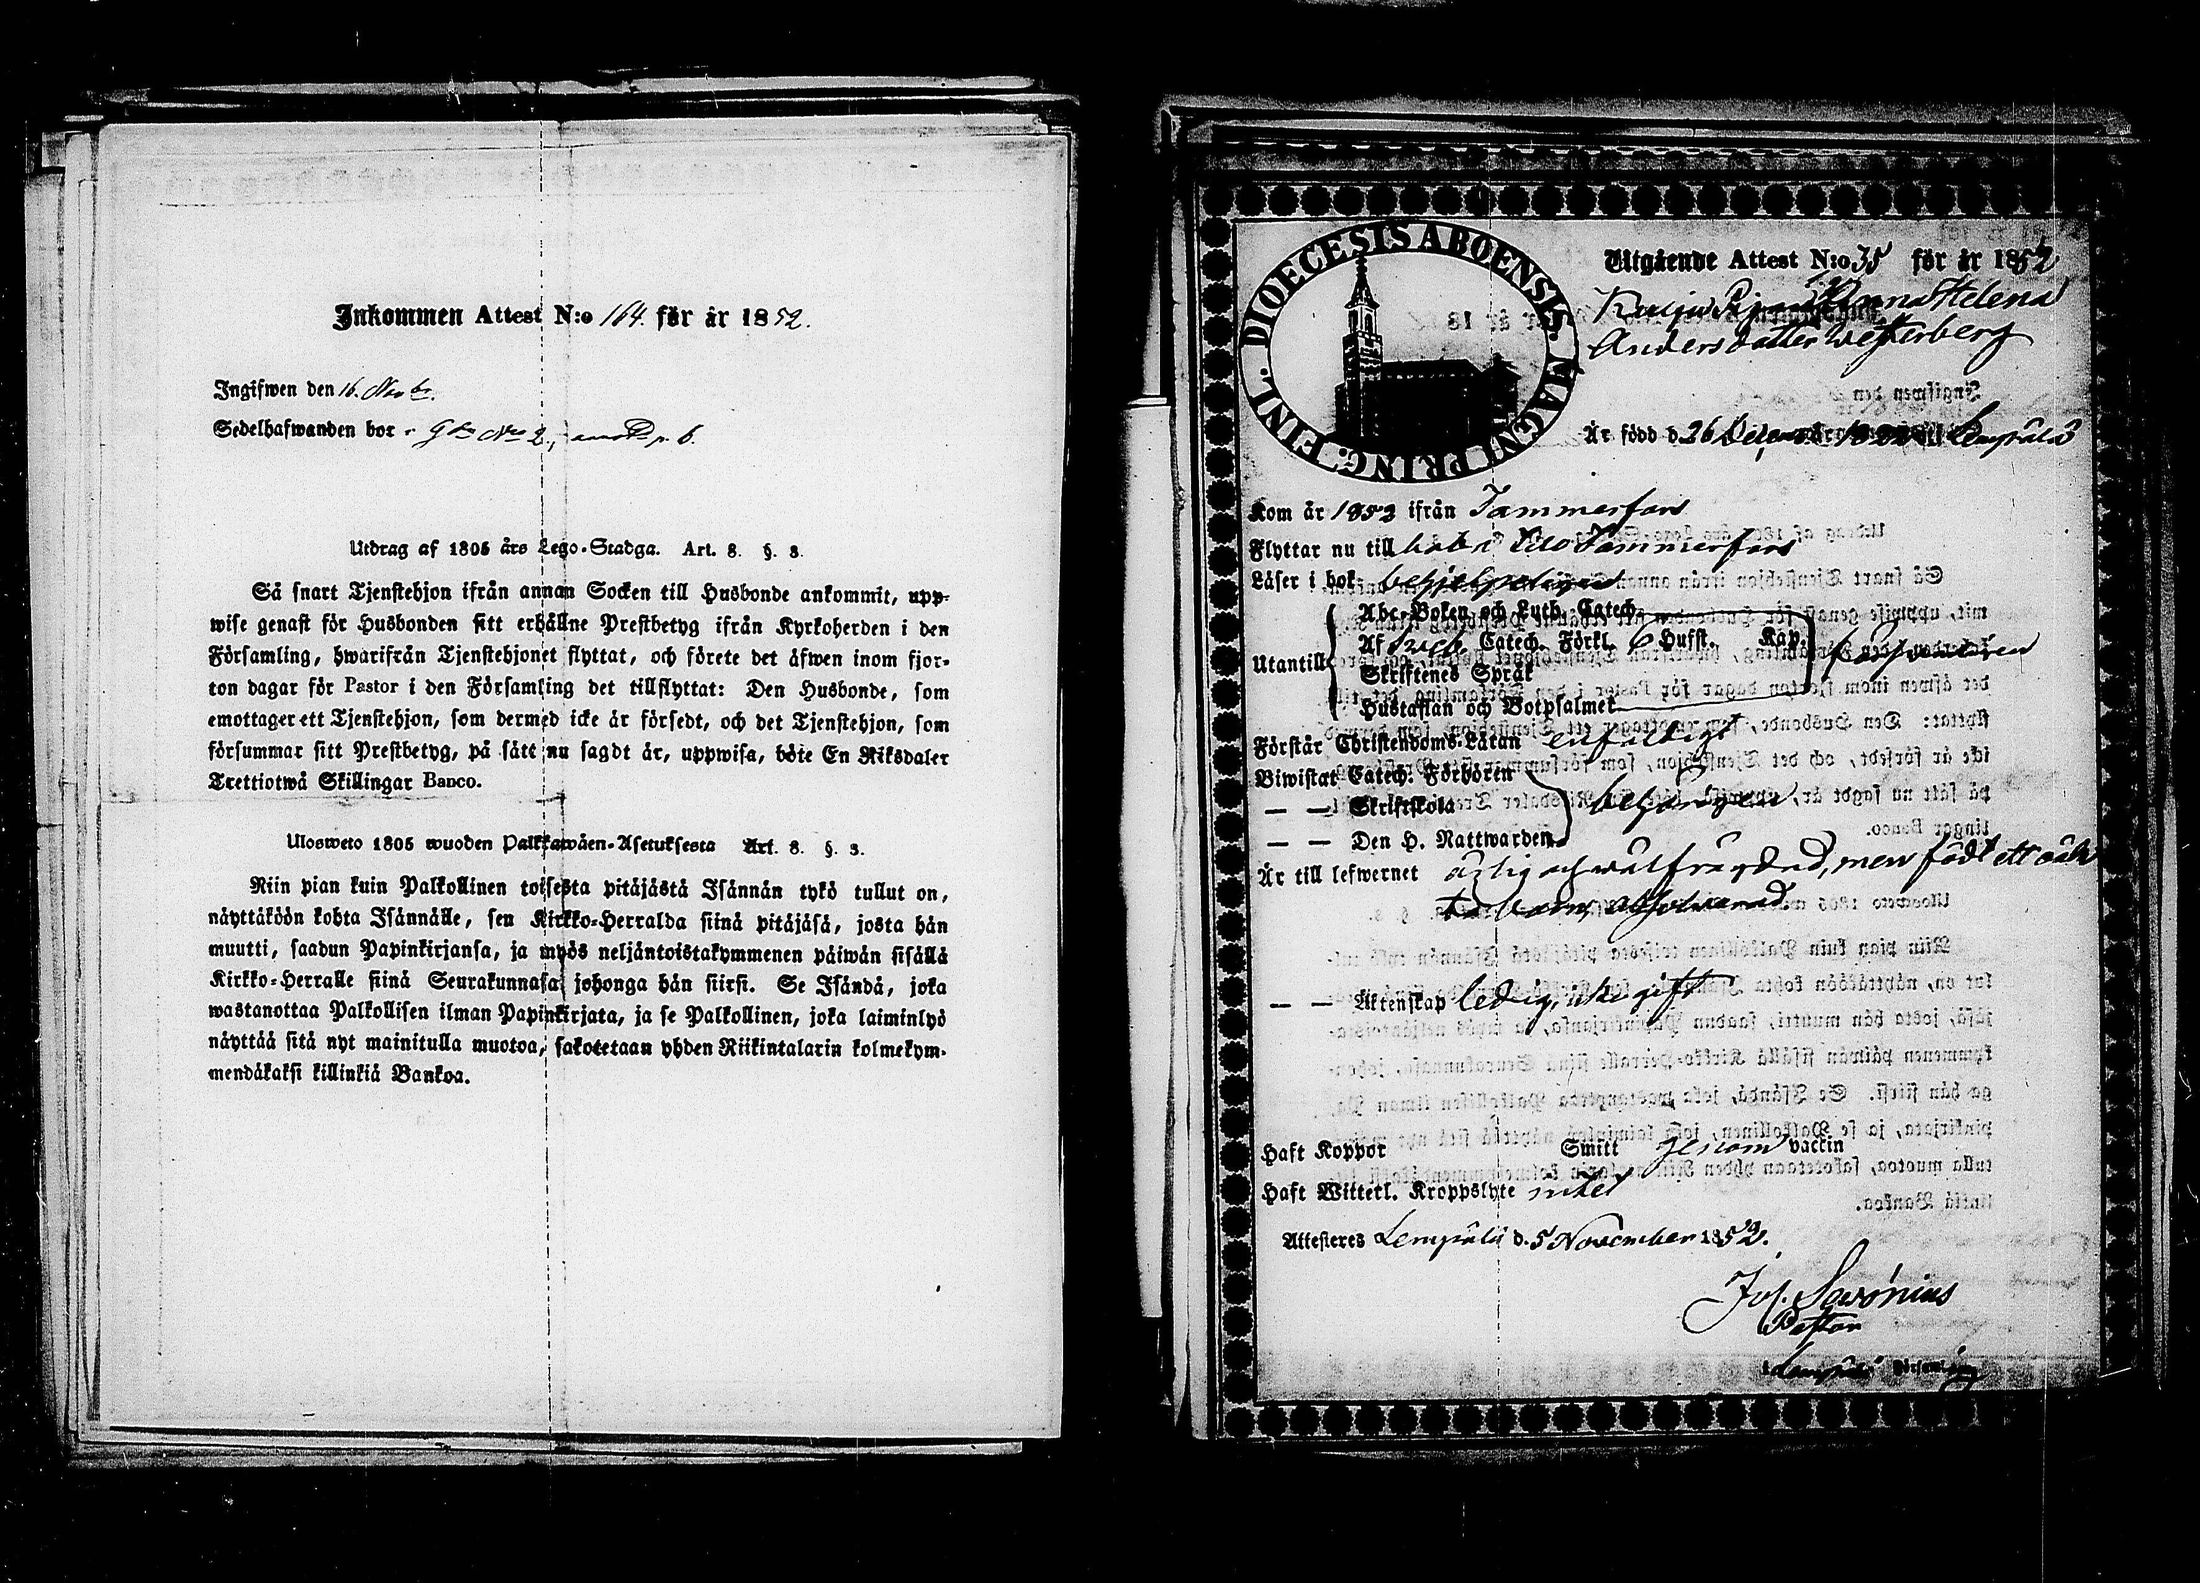 Inkommen Attest N:o 164. för år 1852.
Ingifwen den 16. Novbr.
Sedelhafwanden bor
Utdrag af 1805 års Lego-Stadga. Art. 8. §. 3.
Så snart Tjenstehjon ifrån annan Socken till Husbonde ankommit, upp-
wise genast för Husbonden sitt erhållne Prestbetyg ifrån Kyrkoherden i den
Församling, hwarifrån Tjenstehjonet flyttat, och förete det äfwen inom fjor-
ton dagar för Pastor i den Församling det tillflyttat: Den Husbonde, som
emottager ett Tjenstehjon, som dermed icke är försedt, och det Tjenstehjon, som
försummar sitt Prestbetyg, på sätt nu sagdt är, uppwisa, böte En Riksdaler
Trettiotwå Skillingar Banco.
Ulosweto 1805 wuoden Palkkawäen-Asetuksesta Art. 8. §. 3.
Niin pian kuin Palkollinen toisesta pitäjästä Isännän tykö tullut on,
näyttäköön kohta Isännälle, sen Kirkko-Herralda siinä pitäjäsä, josta hän
muutti, saadun Papinkirjansa, ja myös neljäntoistakymmenen päiwän sisällä
Kirkko-Herralle siinä Seurakunnasa johonga hän siirsi. Se Isändä, joka
wastanottaa Palkollisen ilman Papinkirjata, ja se Palkollinen, joka laiminlyö
näyttää sitä nyt mainitulla muotoa, sakotetaan yhden Riikintalarin kolmekym-
mendäkaksi killinkiä Bankoa.
DIOECESIS ABOENSIS. MAGNI PRING. FINL.
Utgående Attest N:o 35 för år 1852
Anna Helena
Andersdotter Westerberg
Är född d. 26 i Lempälä
Kom år 1852 ifrån Tammerfors
Flyttar nu till Tammerfors
Läser i bok behjelpeligen
Abc-Boken och Luth. Catech.
Utantill Af Sveb. Catech. Förkl. 6 Hufst. Kap. försvarligen
Skriftenes Språk
Hustaflan och Botpsalmer
Förstår Christendoms-Läran enfaldigt
Biwistat Catech. Förhören
— — Skriftskola behörigen
— — Den H. Nattwarden
Är till lefwernet ärlig och wälfräjdad, men födt ett oäk-
ta barn, absolverad
— — Äktenskap ledig, icke gift
Haft Koppor Smitt genom vaccin
Haft Witterl. Kroppslyte intet
Attesteras Lempälä d. 5 November 1852.
Jos. Savónius
Pastor
i Lempälä Församling